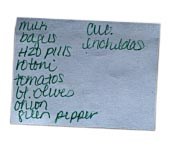 milk
bagels
H2O pills
rotini
tomatos
bl. olives
onion
green pepper
Cut:
enchiladas